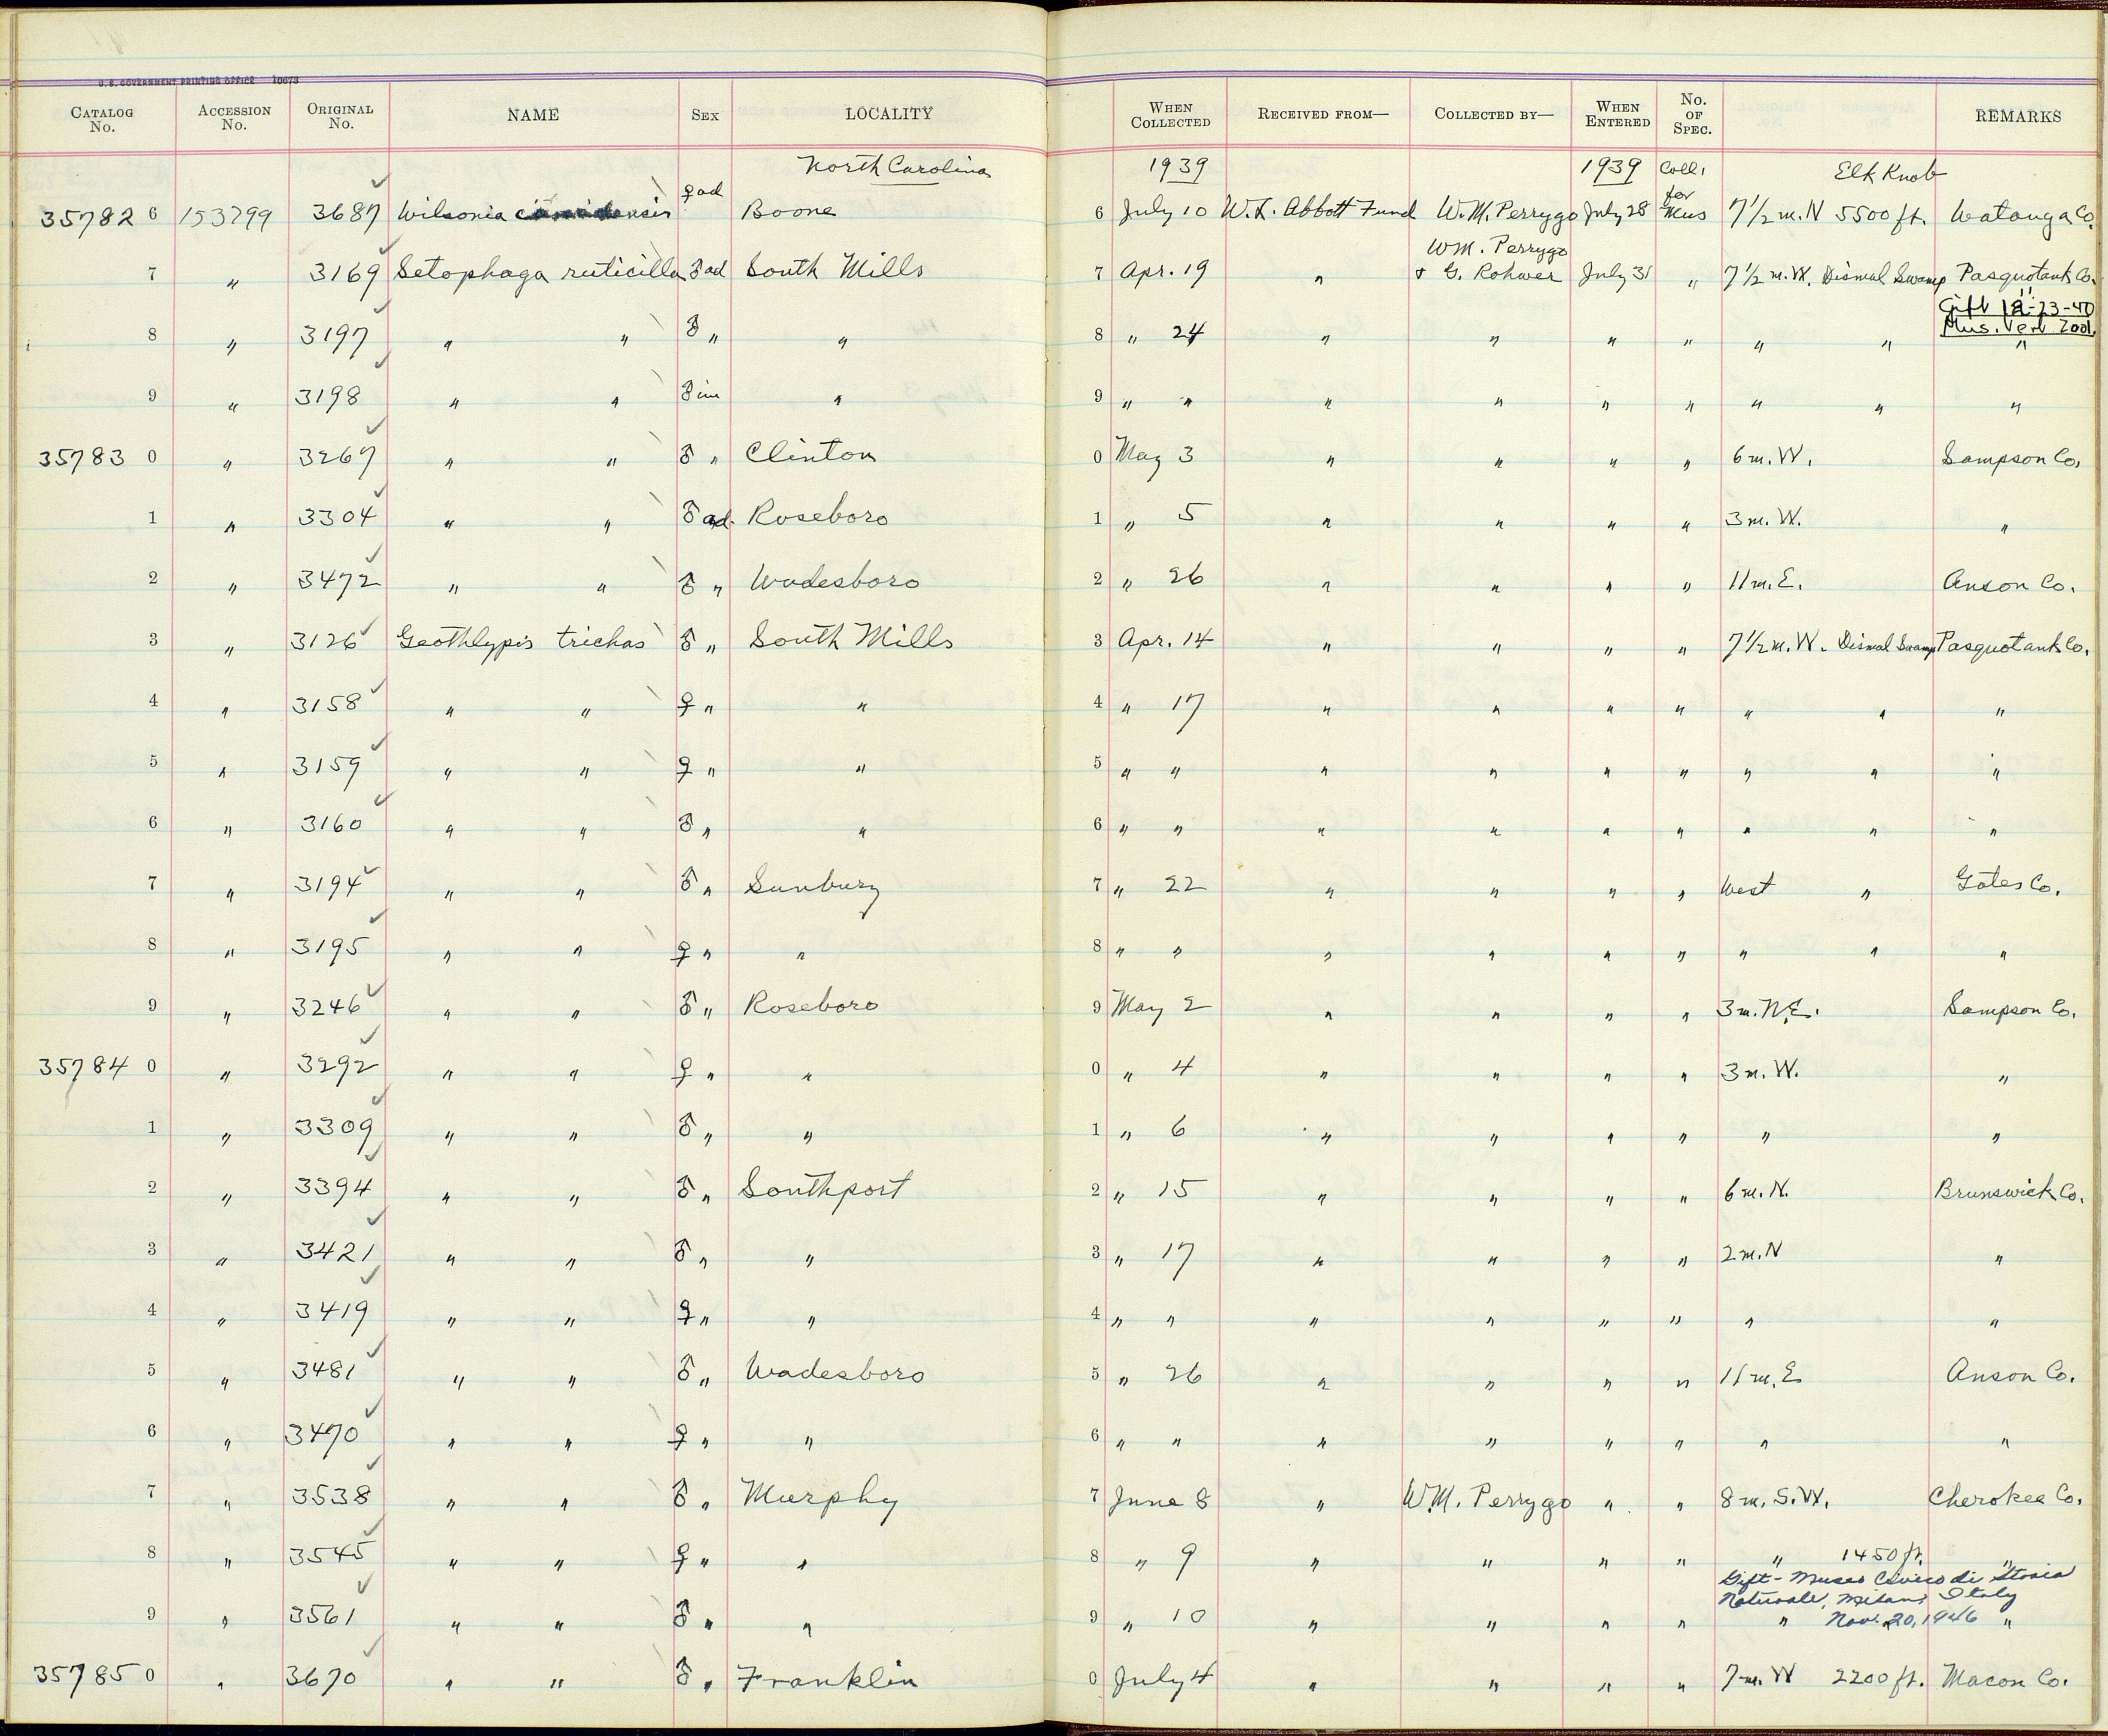 U.S. GOVERNMENT PRINTING OFFICE 10673
CATALOG No. ACCESSION No. ORIGINAL No. NAME SEX LOCALITY WHEN COLLECTED RECEIVED FROM— COLLECTED BY— WHEN ENTERED No. OF SPEC. REMARKS
North Carolina 1939 1939 Coll. Elk Knob
35782 6 153799 3687 ✓ Wilsonia canadensis ♀ ad Boone 6 July 10 W. L. Abbott Fund W. M. Perrygo July 28 for Mus 7 1/2 m. N 5500 ft. Watauga Co.
7 " 3169 ✓ Setophaga ruticilla ♂ ad South Mills 7 Apr. 19 " W M. Perrygo & G. Rohwer July 31 " 7 1/2 m. W. Dismal Swamp Pasquotank Co.
Gift 12-23-40
Mus. Vert Zool.
8 " 3197 ✓ " " ♂ " " 8 " 24 " " " " " " "
9 " 3198 ✓ " " ♂ im " 9 " " " " " " " " "
35783 0 " 3267 ✓ " " ♂ " Clinton 0 May 3 " " " " 6 m. W. Sampson Co.
1 " 3304 ✓ " " ♂ ad. Roseboro 1 " 5 " " " " 3 m. W. "
2 " 3472 ✓ " " ♂ " Wadesboro 2 " 26 " " " " 11 m. E. Anson Co.
3 " 3126 ✓ Geothlypis trichas ♂ " South Mills 3 Apr. 14 " " " " 7 1/2 m. W. Dismal Swamp Pasquotank Co.
4 " 3158 ✓ " " ♀ " " 4 " 17 " " " " " " "
5 " 3159 ✓ " " ♀ " " 5 " " " " " " " " "
6 " 3160 ✓ " " ♂ " " 6 " " " " " " " " "
7 " 3194 ✓ " " ♂ " Sunbury 7 " 22 " " " " West " Gates Co.
8 " 3195 ✓ " " ♀ " " 8 " " " " " " " " "
9 " 3246 ✓ " " ♂ " Roseboro 9 May 2 " " " " 3 m. N.E. Sampson Co.
35784 0 " 3292 ✓ " " ♀ " " 0 " 4 " " " " 3 m. W. "
1 " 3309 ✓ " " ♂ " " 1 " 6 " " " " " "
2 " 3394 ✓ " " ♂ " Southport 2 " 15 " " " " 6 m. N. Brunswick Co.
3 " 3421 ✓ " " ♂ " " 3 " 17 " " " " 2 m. N "
4 " 3419 ✓ " " ♀ " " 4 " " " " " " " "
5 " 3481 ✓ " " ♂ " Wadesboro 5 " 26 " " " " 11 m. E Anson Co.
6 " 3470 ✓ " " ♀ " " 6 " " " " " " " "
7 " 3538 ✓ " " ♂ " Murphy 7 June 8 " W.M. Perrygo " " 8 m. S.W. Cherokee Co.
8 " 3545 ✓ " " ♀ " " 8 " 9 " " " " " 1450 ft. "
Gift - Museo Civico di Storia
Naturale, Milano, Italy
Nov. 20, 1946
9 " 3561 ✓ " " ♂ " " 9 " 10 " " " " " " "
35785 0 " 3670 ✓ " " ♂ " Franklin 0 July 4 " " " " 7 m. W 2200 ft. Macon Co.